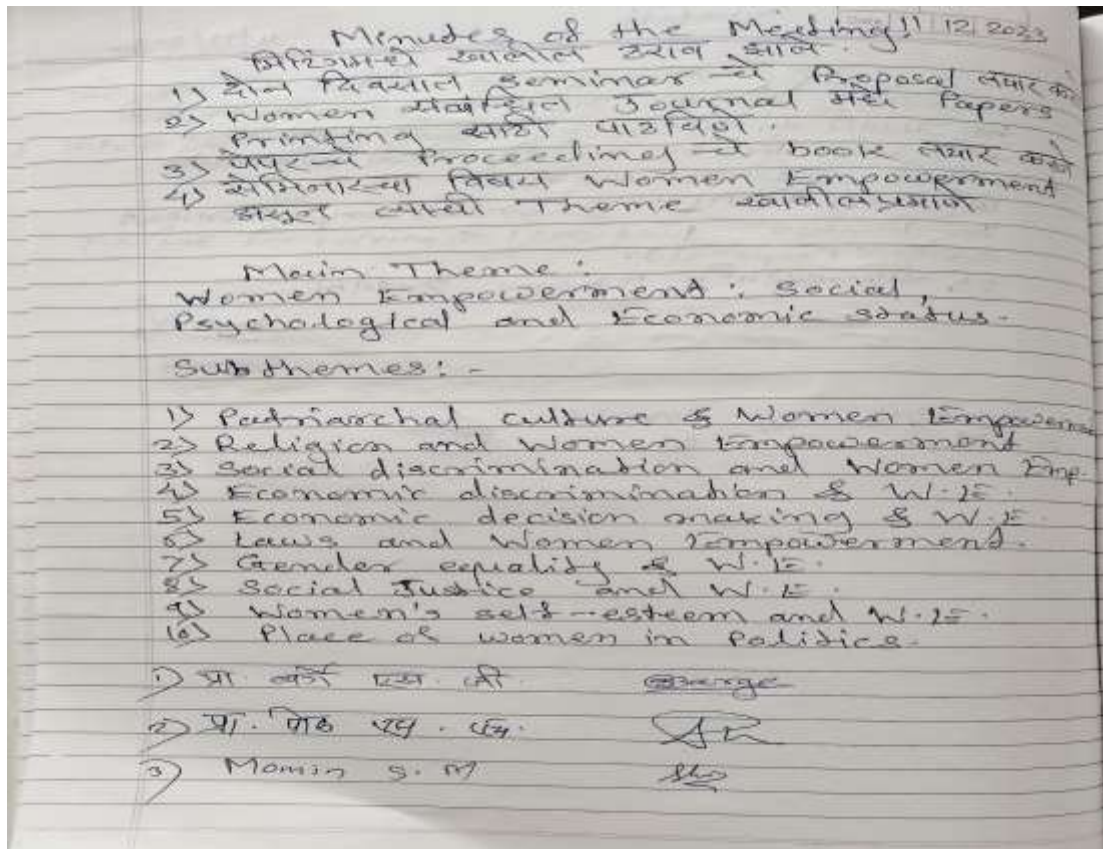 Minutes of the Meeting 11/12/2023
मिटिंगमध्ये खालील ठराव झाले.
1) दोन दिवसात Seminar चे Proposal तयार करणे
2) Women संबंधित Journal मध्ये Papers
Printing साठी पाठविणे.
3) पेपरचे Proceedings चे book तयार करणे
4) सेमिनारचा विषय Women Empowerment
असून त्याची Theme खालीलप्रमाणे
Main Theme:
Women Empowerment: Social,
Psychological and Economic status.
Sub themes: -
1) Patriarchal culture & Women Empowerment
2) Religion and Women Empowerment
3) Social discrimination and Women Emp.
4) Economic discrimination & W.E.
5) Economic decision making & W.E.
6) Laws and Women Empowerment.
7) Gender equality & W.E.
8) Social Justice and W.E.
9) Women's self-esteem and W.E.
10) Place of women in Politics.
1) प्रा. एस. जी.
2) प्रा.
3) Momin S. M